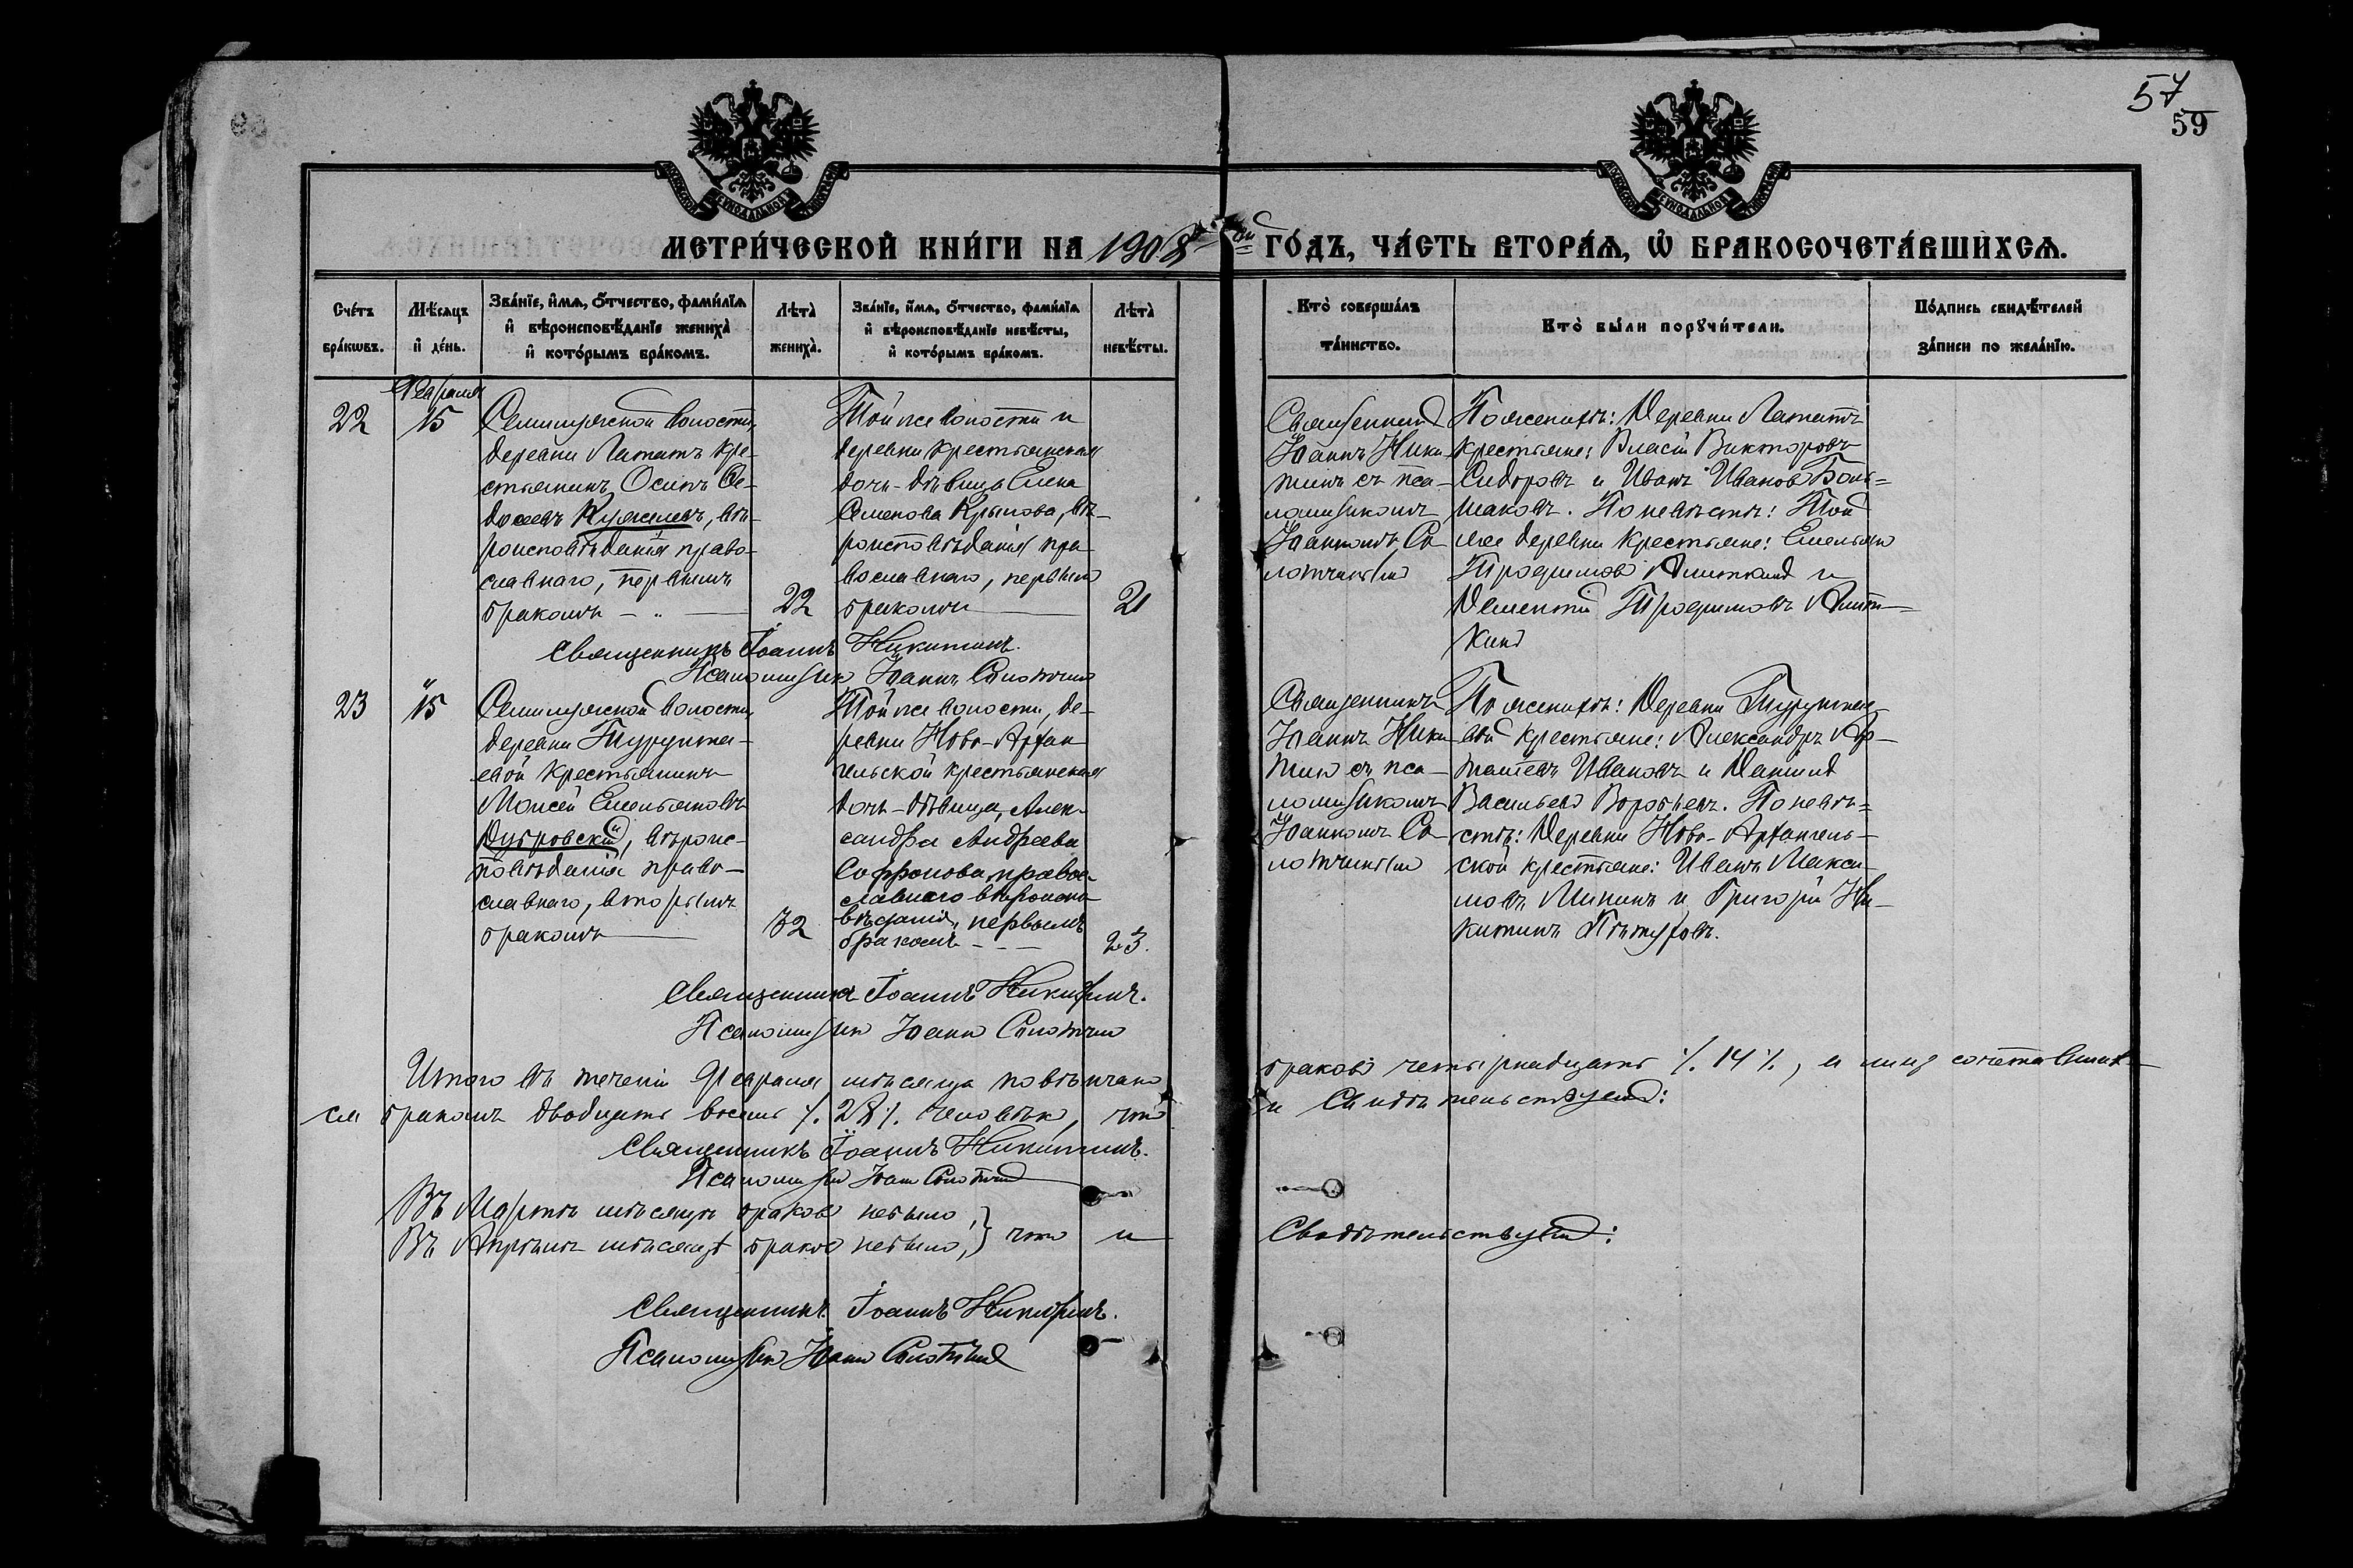 57
59
МЕТРИ́ЧЕСКОЙ КНИ́ГИ НА 1908 ой ГО́ДЪ, ЧА́СТЬ ВТОРА́Ѧ, Ѽ БРАКОСОЧЕТА́ВШИХСѦ.
Сче́тъ
бра́кѡвъ.
Мѣ́сѧцъ
и҆ де́нь.
Зва́нїе, и҆́мѧ, ѻ҆́тчество, фами́лїѧ
и҆ вѣроисповѣ́данїе жениха̀
и҆ кото́рымъ бра́комъ.
Лѣта̀
жениха̀.
Зва́нїе, и҆́мѧ, ѻ҆́тчество, фами́лїѧ
и҆ вѣроисповѣ́данїе невѣ́сты,
и҆ кото́рымъ бра́комъ.
Лѣта̀
невѣ́сты.
Кто̀ соверша́лъ
та́инство.
Кто̀ бы́ли порꙋчи́тели.
По́дпись свидѣ́телей
за́писи по жела́нїю.
Февраля
22
15
Семилужской волости,
деревни Лататъ кре-
стьянинъ Осипъ Ѳе-
досеевъ, вѣ-
роисповѣданія право-
славнаго, первымъ
бракомъ
22
Той же волости и
деревни крестьянская
дочь-дѣвица Елена
Семенова Крылова, вѣ-
роисповѣданія пра-
вославнаго, первымъ
бракомъ
21
Священникъ
Іоаннъ Ники-
тинъ съ пса-
ломщикомъ
Іоанномъ Со-
лотчинымъ
По женихѣ: Деревни Лататъ
крестьяне: Власій Викторовъ
Сидоровъ и Иванъ Ивановъ Боль=
шаковъ. По невѣстѣ: Той
же деревни крестьяне: Емельянъ
Трофимовъ Алиткинъ и
Дементій Трофимовъ Алит-
кинъ
Священникъ Іоаннъ Никитинъ.
Псаломщикъ Іоаннъ Солотчинъ
23
" 15
Семилужской волости,
деревни Турунта-
евой крестьянинъ
Моисей Емельяновъ
Дубровскій, вѣроис-
повѣданія право-
славнаго, вторымъ
бракомъ
32
Той же волости, де-
ревни Ново-Архан-
гельской крестьянская
дочь-дѣвица, Алек-
сандра Андреева
Софронова, право-
славнаго вѣроиспо-
вѣданія, первымъ
бракомъ
23.
Священникъ
Іоаннъ Ники-
тинъ съ пса-
ломщикомъ
Іоанномъ Со-
лотчинымъ
По женихѣ: Деревни Турунтае-
вой крестьяне: Александръ Ар-
Ивановъ и Даніилъ
Васильевъ Воробьевъ. По невѣ=
стѣ: Деревни Ново-Архангель-
ской крестьяне: Иванъ Макси-
мовъ Мининъ и Григорій Ни-
китинъ Пѣтуховъ.
Священникъ Іоаннъ Никитинъ.
Псаломщикъ Іоаннъ Солотчинъ
Итого въ теченіи Февраля мѣсяца повѣнчано браковъ четырнадцать /. 14 /., а лицъ сочетавших-
ся бракомъ двадцать восемь /. 28 /. человѣкъ, что и Свидѣтельствуемъ:
Священникъ Іоаннъ Никитинъ.
Псаломщикъ Іоаннъ Солотчинъ
Въ Мартѣ мѣсяцѣ браковъ небыло,
Въ Апрѣлѣ мѣсяцѣ браковъ небыло, } что и Свидѣтельствуемъ:
Священникъ Іоаннъ Никитинъ.
Псаломщикъ Іоаннъ Солотчинъ